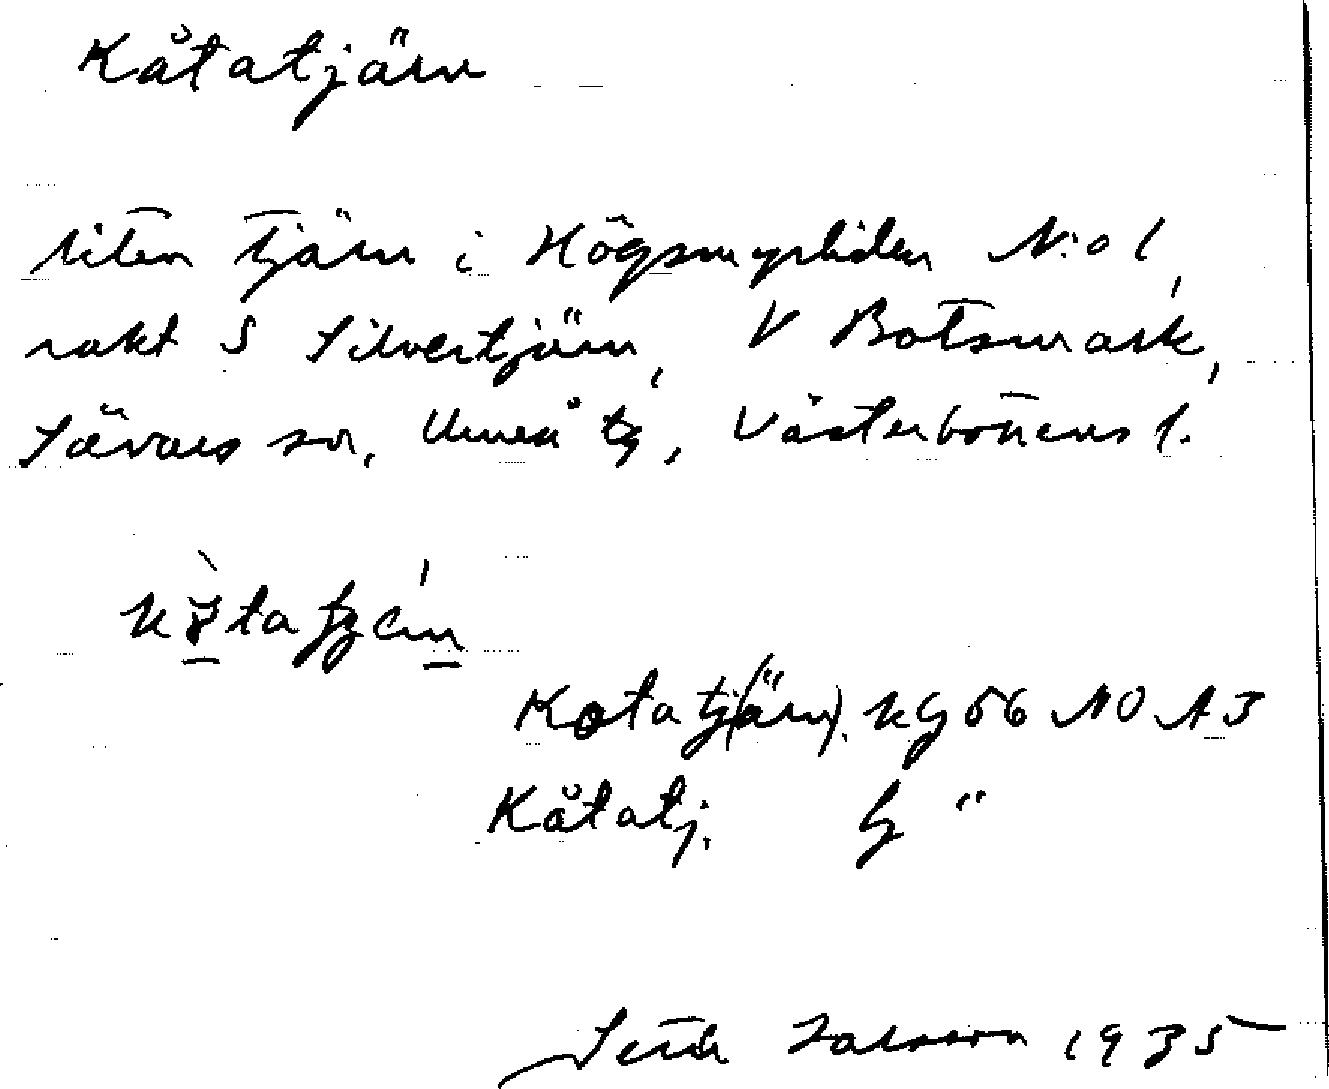 Kåtatjärn
liten tjärn i Högsmyrliden N:o 1,
rakt S Silvertjärn, V Botsmark,
Sävars sn, Umeå tg, Västerbottens l.
Kota tj(ärn). kg 56 NO A3
Kåtatj. G "
1935